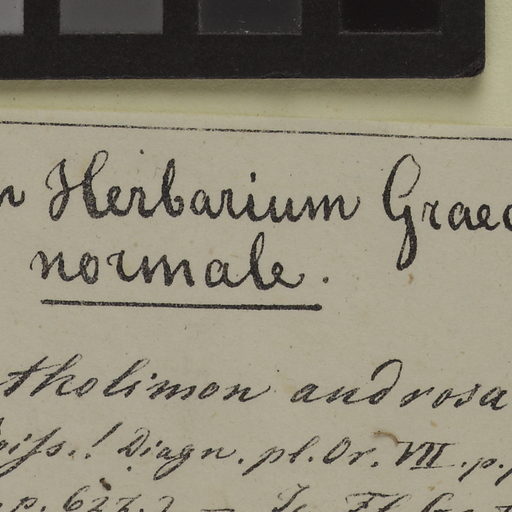 Herbarium Graec
normale.
tholimon androsa
oiss.! Diagn. pl. Or. VII. p.
p. 627.